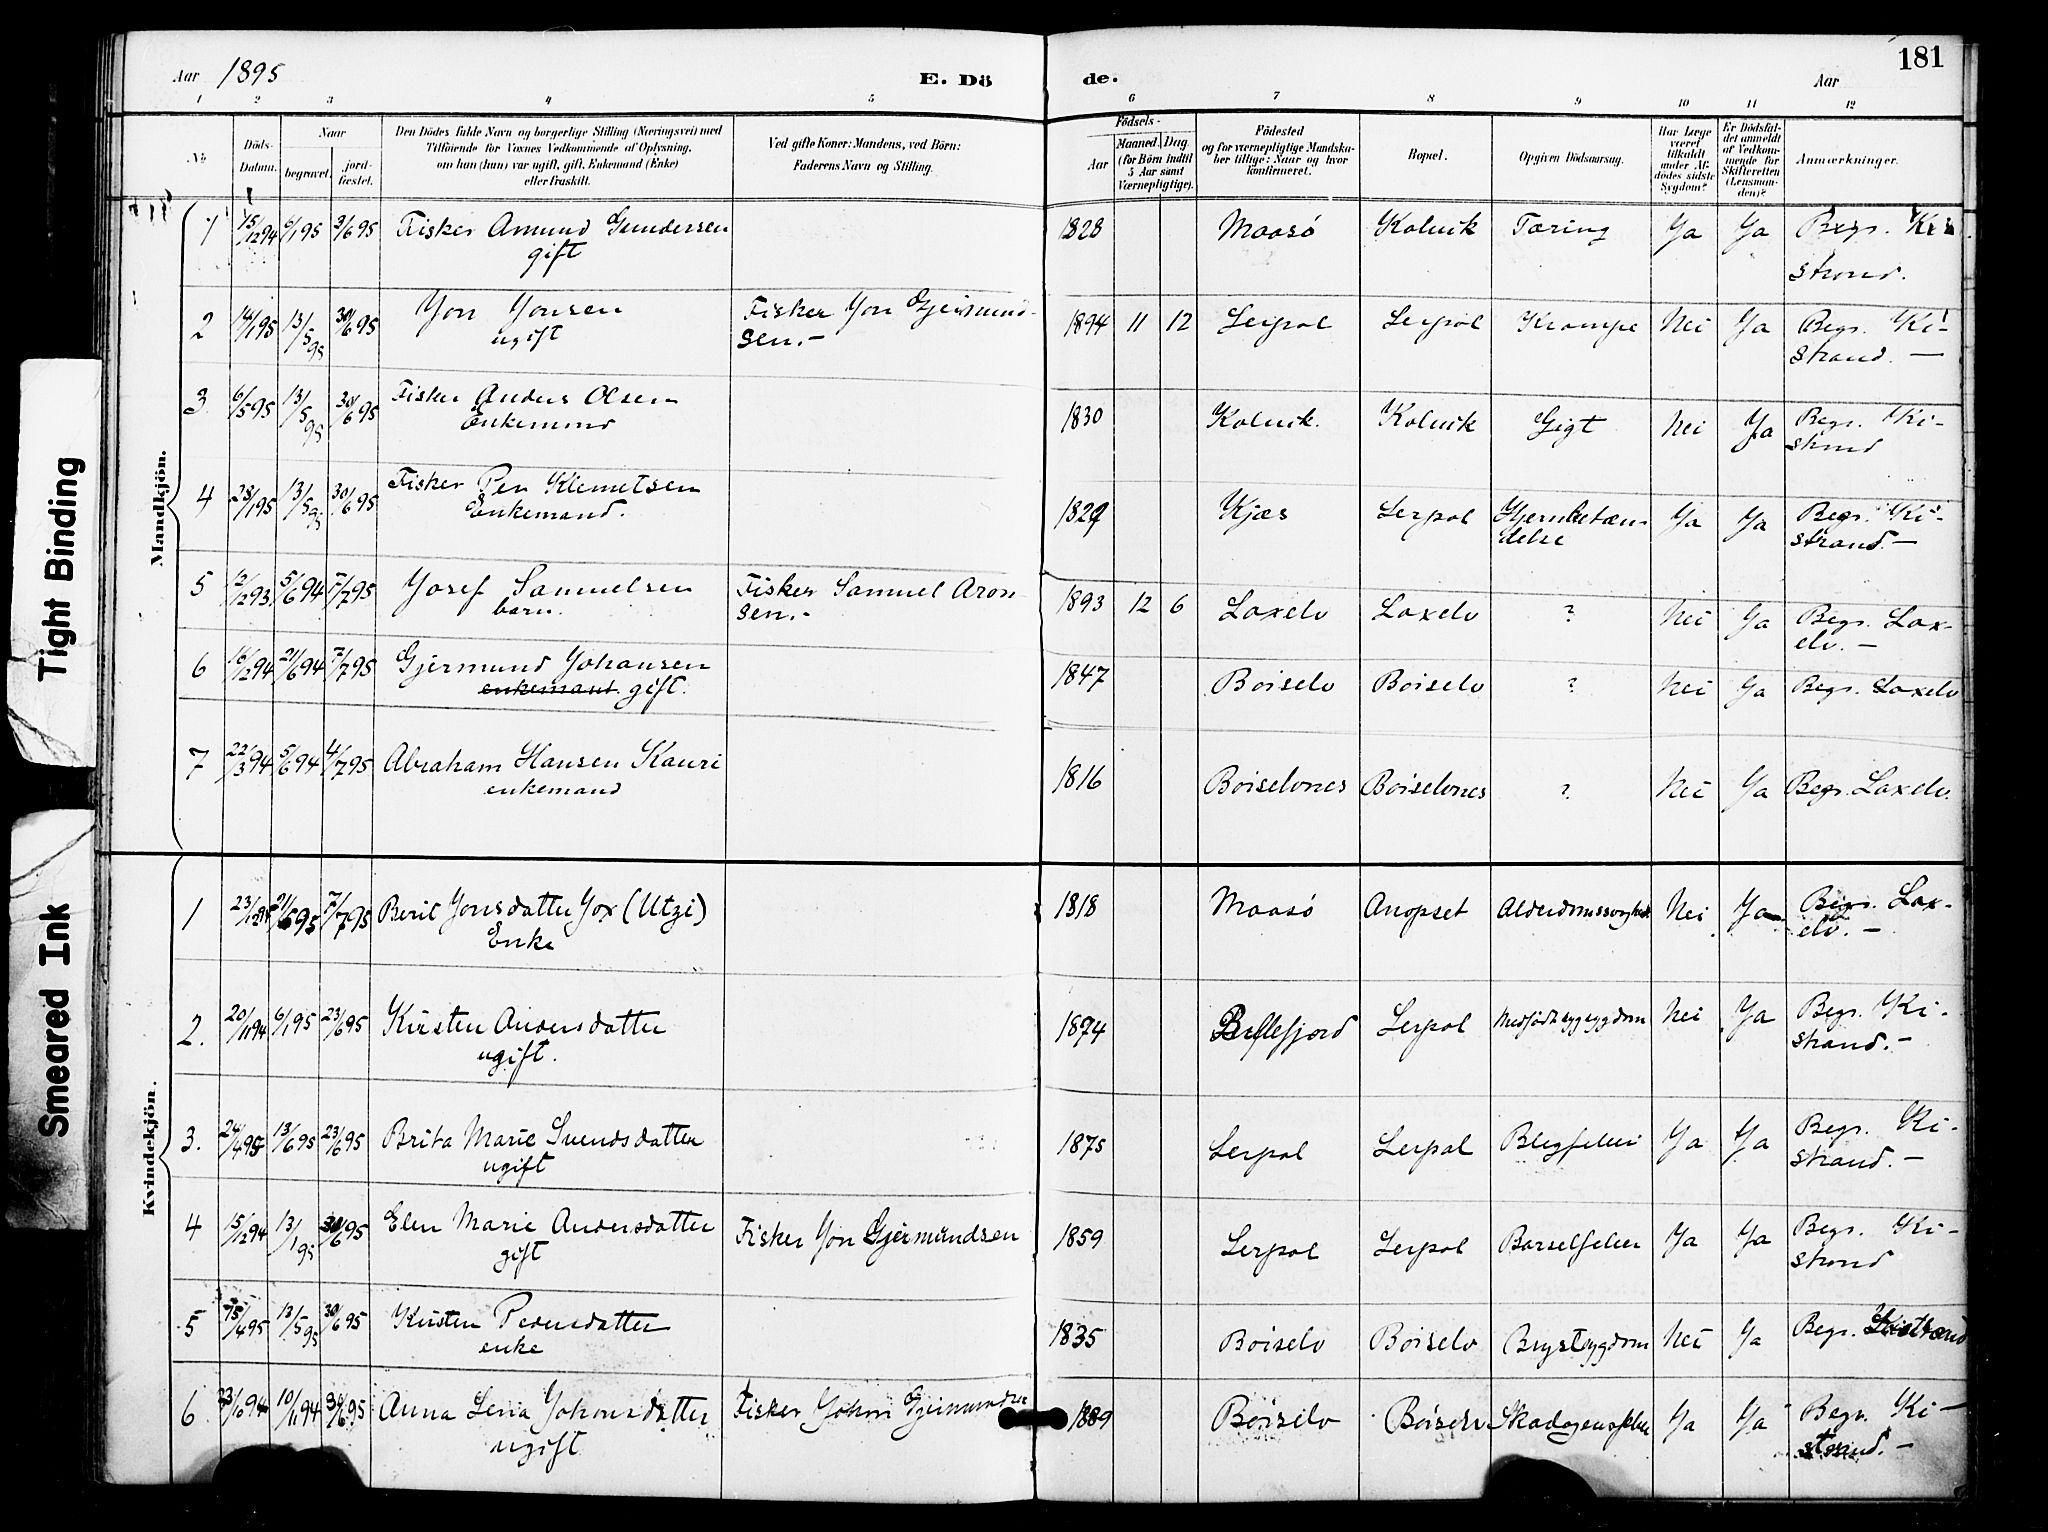 181
Aar 1895
E. Dö de.
Aar
1 2 3 4 5 6 7 8 9 10 11 12
No.
Döds-Datum.
Naar
begravet.
jord-fæstet.
Den Dödes fulde Navn og borgerlige Stilling (Næringsvei) med
Tilföiende for Voxnes Vedkommende af Oplysning,
om han (hun) var ugift, gift, Enkemand (Enke)
eller fraskilt.
Ved gifte Koner: Mandens, ved Börn:
Faderens Navn og Stilling.
Födsels-
Aar
Maaned. Dag
(for Börn indtil
5 Aar samt
Værnepligtige).
Födested
og for værnepligtige Mandska-
ber tillige: Naar og hvor
konfirmeret.
Bopæl.
Opgiven Dödsaarsag.
Har Læge
været
tilkaldt
under Af-
dödes sidste
Sygdom?
Er Dödsfal-
det anmeldt
af Vedkom-
mende for
Skifteretten
(Lensman-
den)?
Anmærkninger.
Mandkjön.
1 15/12 94 6/1 95 3/6 95 Fisker Amund Gundersen 1828 Maasö Kolvik Tæring Ja Ja Begr. Ki
gift strand.
2 14/1 95 13/5 95 30/6 95 Yon Yonsen Fisker Yon Gjermund- 1894 11 12 Lerpol Lerpol Krampe Nei Ja Begr. Ki-
ugift sen.- strand. -
3 6/5 95 13/5 95 30/6 95 Fisker Anders Olsen 1830 Kolvik. Kolvik Gigt Nei Ja Begr. Ki-
Enkemand strand
4 28/1 95 13/5 95 30/6 95 Fisker Per Klemetsen 1829 Kjæs Lerpol Hjernebetæn- Ja Ja Begr. Ki-
Enkemand. delse strand. -
5 12/12 93 5/6 94 7/7 95 Yosef Samuelsen Fisker Samuel Aron- 1893 12 6 Laxelv Laxelv ? Nei Ja Begr. Lax-
barn. sen.- elv. -
6 16/12 94 21/6 94 7/7 95 Gjermund Yohansen 1847 Boiselv Boiselv ? Nei Ja Begr. Laxelv
enkemand. gift.
7 22/3 94 5/6 94 4/7 95 Abraham Hansen Kauri 1816 Boiselvnes Boiselvnes ? Nei Ja Begr. Laxelv.
enkemand
Kvindekjön.
1 7/7 95 Berit Yonsdatter Yox (Utzi) 1818 Maasö Anopset Nei Ja Begr. Lax-
Enke elv. -
2. 20/11 94 6/1 95 23/6 95 Kirsten Andersdatter 1874 Billefjord Lerpol Nei Ja Begr. Ki-
ugift. strand. -
3. 24/4 95 13/6 95 23/6 95 Brita Marie Svendsdatter 1875 Lerpol Lerpol Blegfeber Ja Ja Begr. Ki-
ugift strand. -
4 15/12 94 13/1 95 30/6 95 Elen Marie Andersdatter Fisker Yon Gjermundsen 1859 Lerpol Lerpol Barselfeber Ja Ja Begr. Ki-
gift strand
5 15/4 95 13/5 95 30/6 95 Kirsten Pedersdatter 1835 Boiselv Boiselv Brystsygdom Nei Ja Begr. Kistrand
enke
6 10/11 94 30/6 95 Anna Lena Yohansdatter Fisker Yohan Gjermundsen 1889 Boiselv Boiselv Ja Ja Begr. Ki-
ugift strand. -
Tight Binding
Smeared Ink